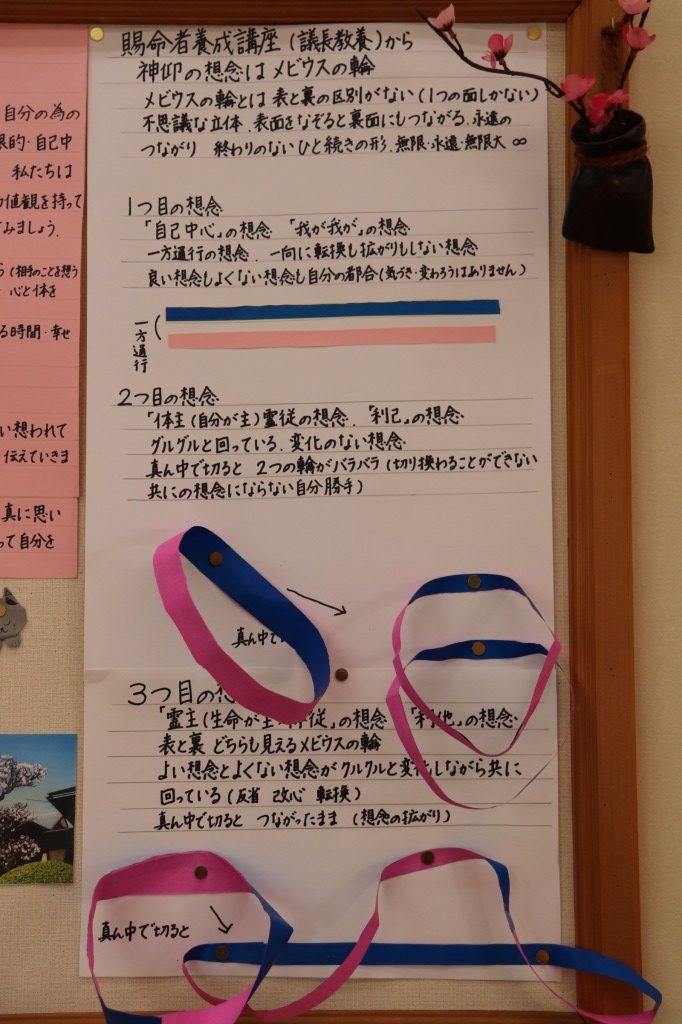 賜命者養成講座(議長教養)から
神仰の想念はメビウスの輪
メビウスの輪とは表と裏の区別がない(1つの面しかない)
不思議な立体.表面をなぞると裏面にもつながる.永遠の
つながり 終わりのないひと続きの形.無限・永遠・無限大 ∞
1つ目の想念
「自己中心」の想念 「我が我が」の想念
一方通行の想念. 一向に転換し拡がりもしない想念
良い想念もよくない想念も自分の都合(気づき・変わろうはありません)
一方通行
2つ目の想念
「体主(自分が主)霊従の想念.「利己」の想念
グルグルと回っている.変化のない想念
真ん中で切ると 2つの輪がバラバラ(切り換わることができない
共にの想念にならない自分勝手)
真ん中で
3つ目の想
「霊主(生命が主)体従」の想念 「利他」の想念
表と裏 どちらも見えるメビウスの輪
よい想念とよくない想念がクルクルと変化しながら共に
回っている(反省 改心 転換)
真ん中で切ると つながったまま (想念の拡がり)
真ん中で切ると
自分の為の
的・自己中
私たちは
値観を持って
みましょう.
(相手のことを想う
心と体を
る時間・幸せ
い想われて
伝えていきま
真に思い
って自分を